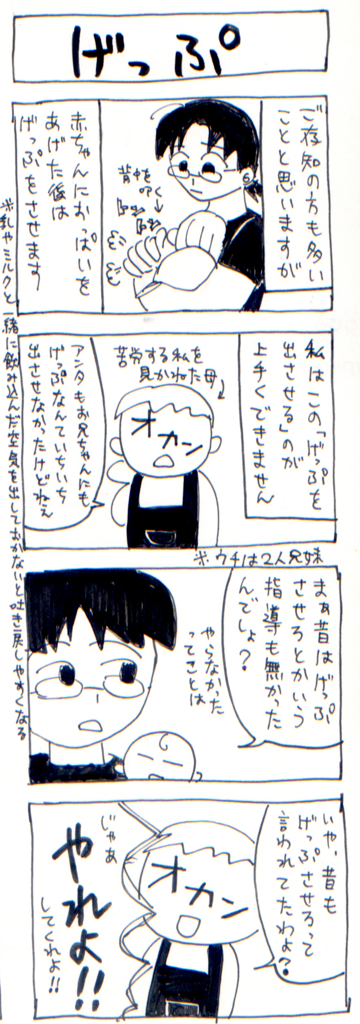 げっぷ
ご存知の方も多い
ことと思いますが
背中を
叩く
トントン
トントン
赤ちゃんにおっぱいを
あげた後は
げっぷをさせます
※乳やミルクと一緒に飲み込んだ空気を出しておかないと吐き戻しやすくなる
私はこの「げっぷを
出させる」のが
上手くできません
苦労する私を
見かねた母
オカン
アンタもお兄ちゃんにも
げっぷなんていちいち
出させなかったけどねぇ
※ウチは2人兄妹
まぁ昔はげっぷ
させろとかいう
指導も無かった
んでしょ?
やらなかった
ってことは
いや、昔も
げっぷさせろって
言われてたわよ?
オカン
じゃあ
やれよ!!
してくれよ!!